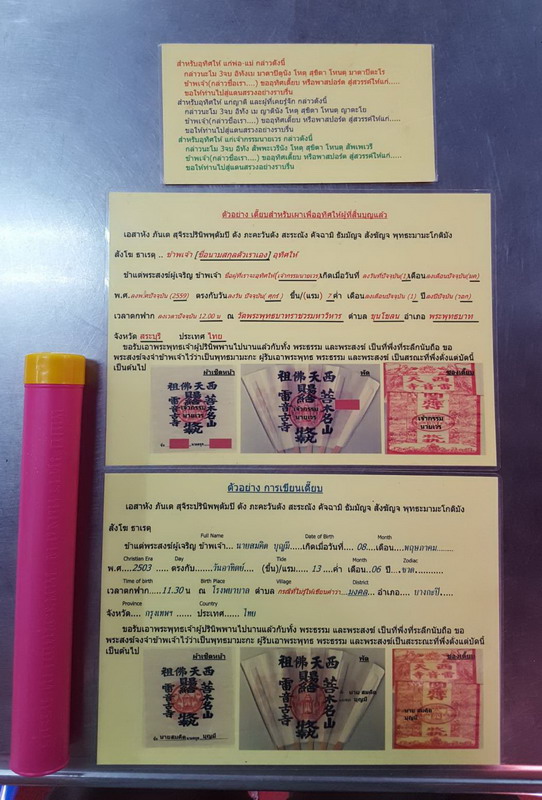 สำหรับอุทิศให้ แก่พ่อ-แม่ กล่าวดังนี้
กล่าวนะโม 3จบ อิทังเม มาตาปิตูนัง โหตุ สุขิตา โหนตุ มาตาปิตะโร
ข้าพเจ้า(กล่าวชื่อเรา....) ขออุทิศเตี๊ยบ หรือพาสปอร์ต สู่สวรรค์ให้แก่.....
ขอให้ท่านไปสู่แดนสรวงอย่างราบรื่น
สำหรับอุทิศให้ แก่ญาติ และผู้ที่เคยรู้จัก กล่าวดังนี้
กล่าวนะโม 3จบ อิทัง เม ญาตินัง โหตุ สุขิตา โหนตุ ญาตะโย
ข้าพเจ้า(กล่าวชื่อเรา....) ขออุทิศเตี๊ยบ หรือพาสปอร์ต สู่สวรรค์ให้แก่.....
ขอให้ท่านไปสู่แดนสรวงอย่างราบรื่น
สำหรับอุทิศให้ แก่เจ้ากรรมนายเวร กล่าวดังนี้
กล่าวนะโม 3จบ อิทัง สัพพะเวรีนัง โหตุ สุขิตา โหนตุ สัพเพเวรี
ข้าพเจ้า(กล่าวชื่อเรา....) ขออุทิศเตี๊ยบ หรือพาสปอร์ต สู่สวรรค์ให้แก่.....
ขอให้ท่านไปสู่แดนสรวงอย่างราบรื่น
ตัวอย่าง เตี๊ยบสำหรับเผาเพื่ออุทิศให้ผู้ที่สิ้นบุญแล้ว
เอสาหัง ภันเต สุจิระปรินิพพุตัมปิ ตัง ภะคะวันตัง สะระณัง คัจฉามิ ธัมมัญจ สังฆัญจ พุทธะมามะโกติมัง
สังโฆ ธาเรตุ .. ข้าพเจ้า [ชื่อนามสกุลตัวเราเอง] อุทิศให้
ข้าแต่พระสงฆ์ผู้เจริญ ข้าพเจ้า ชื่อผู้ที่เราจะอุทิศให้(เจ้ากรรมนายเวร)เกิดเมื่อวันที่ ลงวันที่ปัจจุบัน(1)เดือนลงเดือนปัจจุบัน(มค)
พ.ศ.ลงพ.ศปัจจุบัน (2559) ตรงกับวันลงวัน ปัจจุบัน( ศุกร์ ) ขึ้น/(แรม) 7ค่ำ เดือนลงเดือนปัจจุบัน (1) ปีลงปีปัจจุบัน (วอก)
เวลาตกฟาก ลงเวลาปัจจุบัน 12.00 น ณ วัดพระพุทธบาทราชวรมหาวิหาร ตำบล ขุนโขลน อำเภอ พระพุทธบาท
จังหวัด สระบุรี ประเทศ ไทย
ขอรับเอาพระพุทธเจ้าผู้ปรินิพพานไปนานแล้วกับทั้ง พระธรรม และพระสงฆ์ เป็นที่พึ่งที่ระลึกนับถือ ขอ
พระสงฆ์จงจำข้าพเจ้าไว้ว่าเป็นพุทธมามะกะ ผู้รับเอาพระพุทธ พระธรรม และพระสงฆ์ เป็นสรณะที่พึ่งตั้งแต่บัดนี้
เป็นต้นไป
ผ้าเช็ดหน้า
พัด
ซองเตี๊ยบ
西天佛祖
賜
善本名山
雷音古寺
เจ้ากรรม
นายเวร
西天佛祖
賜
善本名山
雷音古寺
เจ้ากรรม
นายเวร
เจ้ากรรม
นายเวร
ตัวอย่าง การเขียนเตี๊ยบ
เอสาหัง ภันเต สุจิระปรินิพพุตัมปิ ตัง ภะคะวันตัง สะระณัง คัจฉามิ ธัมมัญจ สังฆัญจ พุทธะมามะโกติมัง
สังโฆ ธาเรตุ
Full Name Date of Birth Month
ข้าแต่พระสงฆ์ผู้เจริญ ข้าพเจ้า... นายสมคิด บุญมี.....เกิดเมื่อวันที่ .... 08....เดือน....พฤษภาคม........
Christian Era Day Tide Month Zodiac
พ.ศ....2503 ..... ตรงกับ.......วันอาทิตย์.... (ขึ้น)/แรม..... 13 ....ค่ำ เดือน...06 ปี....ขวด............
Time of birth Birth Place Village District
เวลาตกฟาก.....11.30 น ณ โรงพยาบาล ตำบล กรณีที่ไม่รู้ให้เขียนคำว่า....มงคล... อำเภอ.... บางกะปิ.....
Province Country
จังหวัด.... กรุงเทพฯ ...... ประเทศ...... ไทย
ขอรับเอาพระพุทธเจ้าผู้ปรินิพพานไปนานแล้วกับทั้ง พระธรรม และพระสงฆ์ เป็นที่พึ่งที่ระลึกนับถือ ขอ
พระสงฆ์จงจำข้าพเจ้าไว้ว่าเป็นพุทธมามะกะ ผู้รับเอาพระพุทธ พระธรรม และพระสงฆ์ เป็นสะระณะที่พึ่งตั้งแต่บัดนี้
เป็นต้นไป
ผ้าเช็ดหน้า
พัด
ซองเตี๊ยบ
西天佛祖
賜
善本名山
雷音古寺
ชื่อ นายสมคิด นามสกุล บุญมี
นาย สมคิด
บุญมี
นาย สมคิด
บุญมี